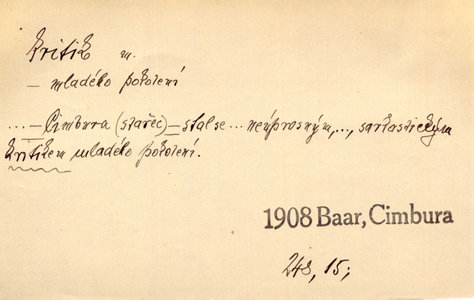 kritik m.
— mladého pokolení
.... — Cimbura (stařec) — stal se ... neúprosným, .., sarkastickým
kritikem mladého pokolení.
1908 Baar, Cimbura
248, 15;